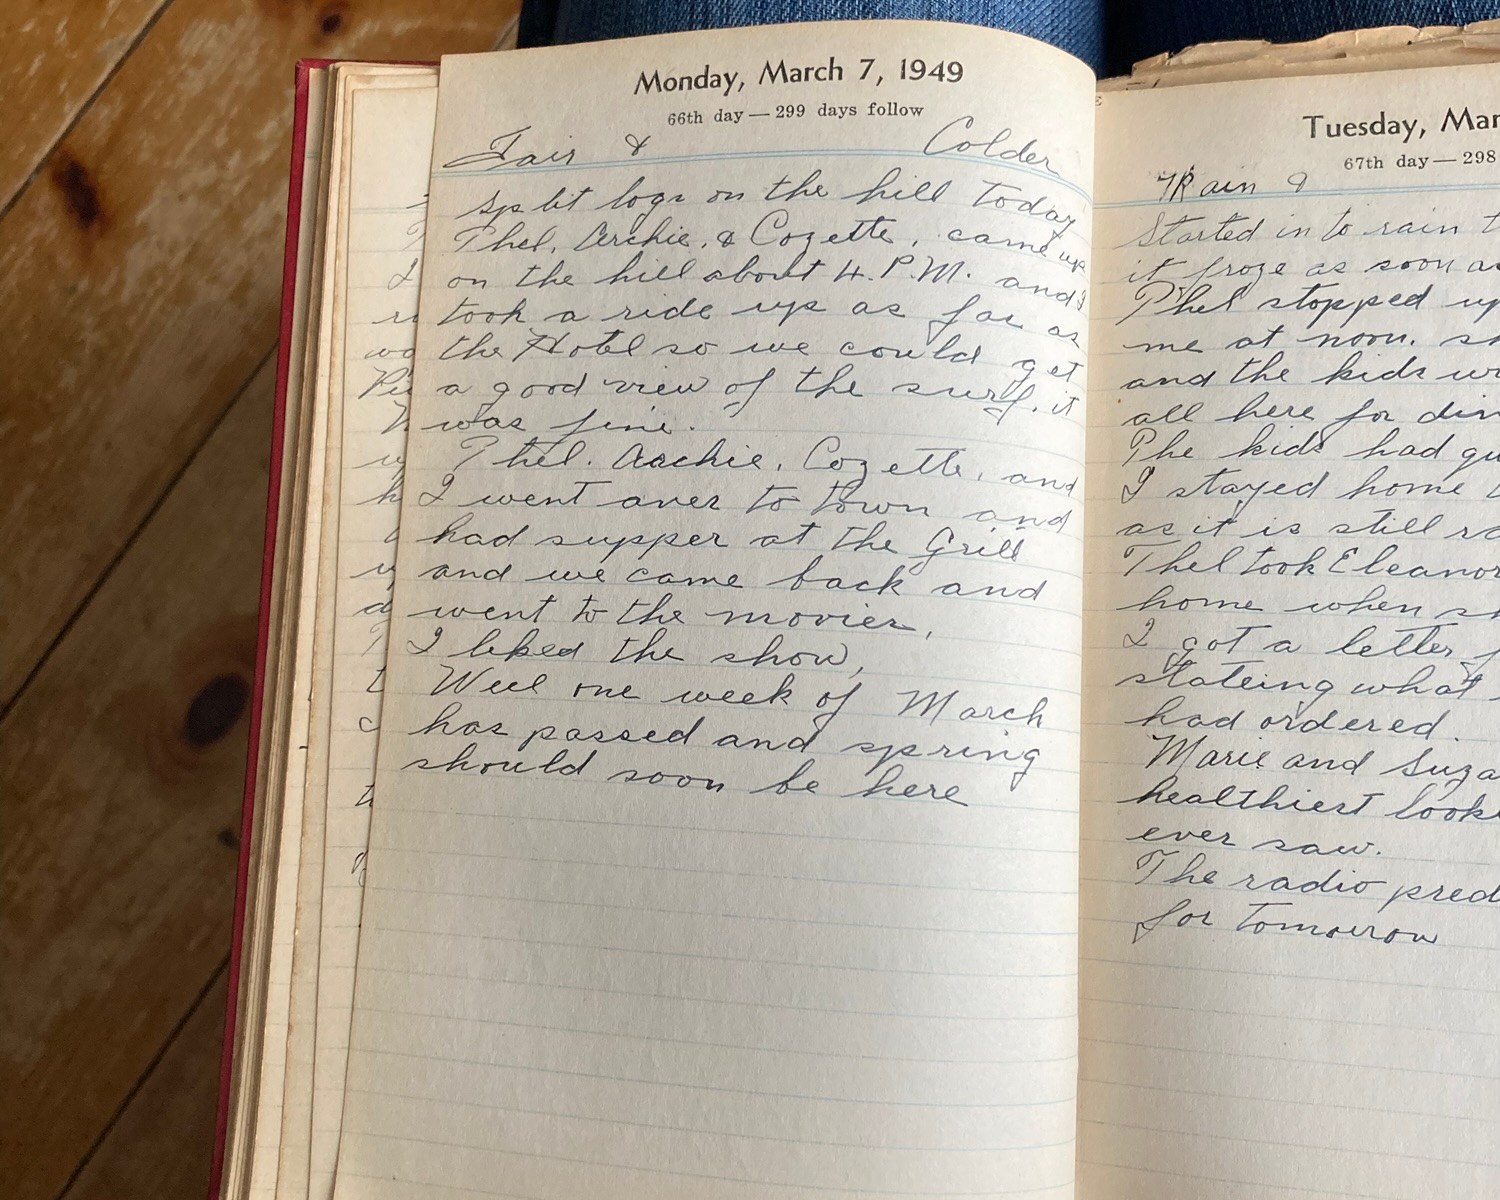 Monday, March 7, 1949
66th day — 299 days follow
Fair & Colder
split logs on the hill today
Thel, Archie, & Cozette, came up
on the hill about 4. P.M. and I
took a ride up as far as
the Hotel so we could get
a good view of the surf. it
was fine.
Thel. Archie, Cozette, and
I went over to town and
had supper at the Grill
and we came back and
went to the movies,
I liked the show,
Well one week of March
has passed and spring
should soon be here
Tuesday, Mar
67th day — 298
Rain &
Started in to rain
it froze as soon as
Thel stopped up
me at noon.
and the kids
all here for din
The kids had
I stayed home
as it is still
Thel took Eleanor
home when
I got a letter
stateing what
had ordered.
Marie and Suza
healthiest look
ever saw.
The radio pred
for tomorrow